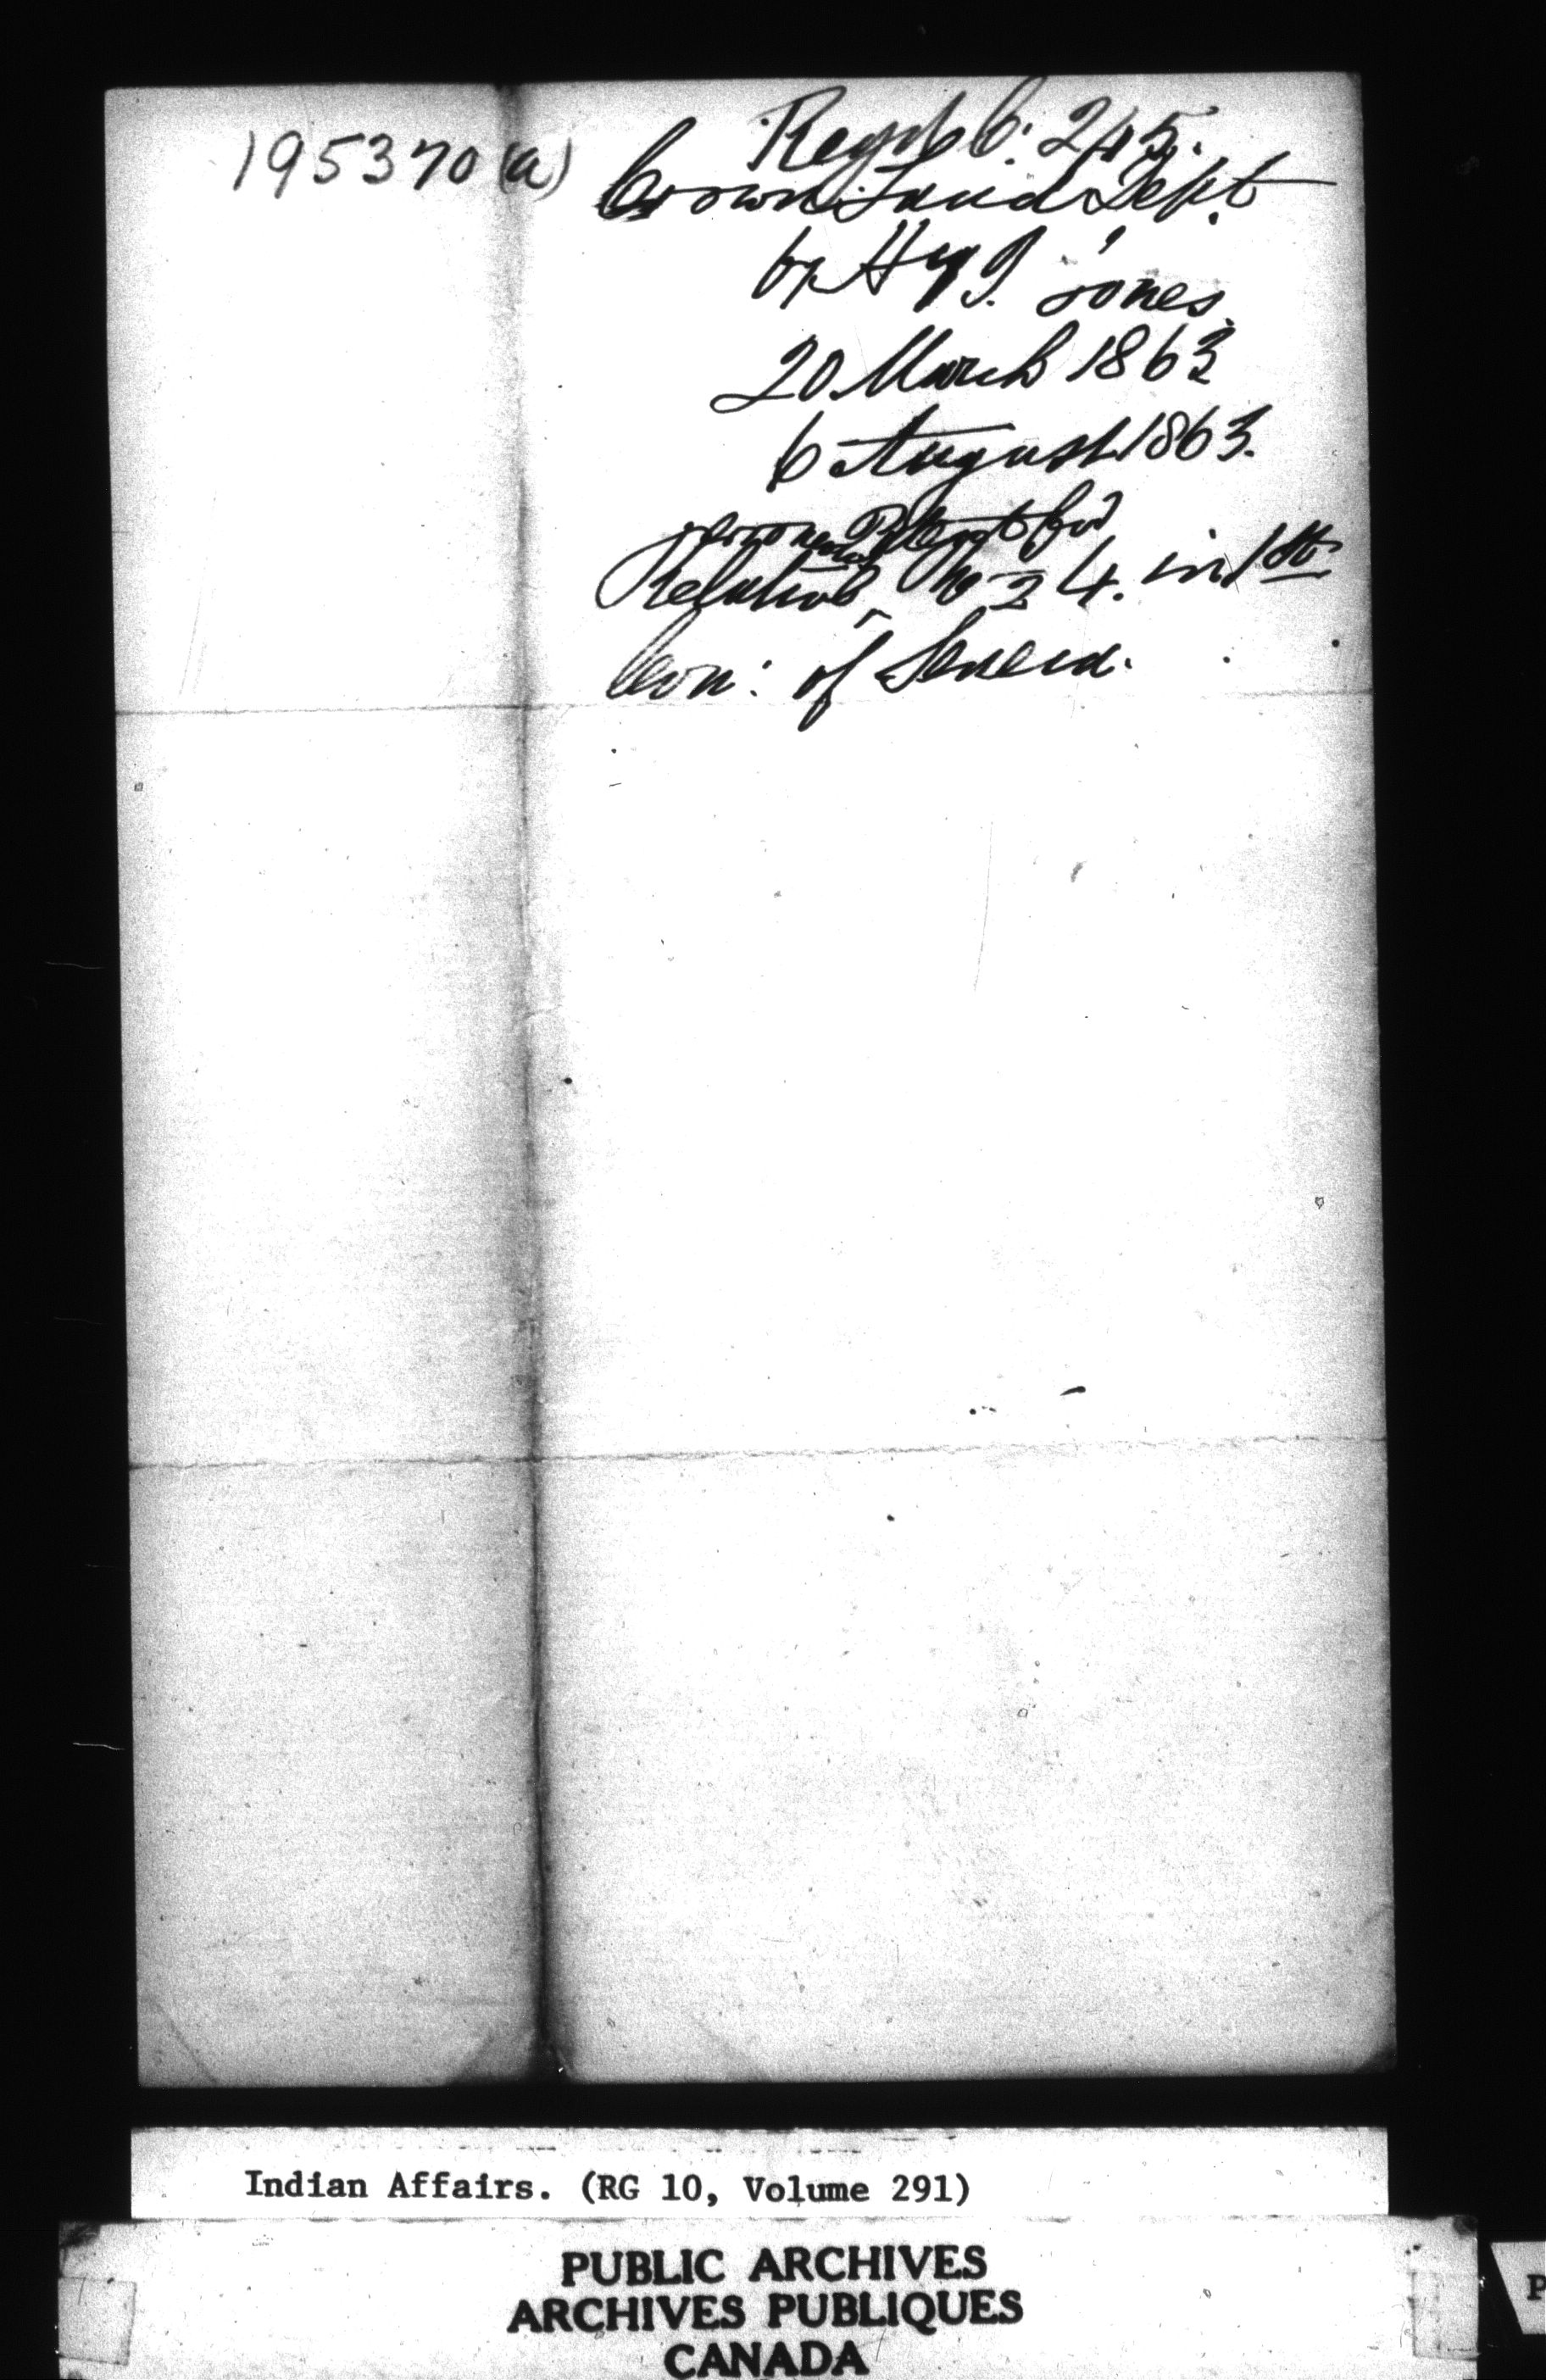 195370 (a)
Regd C. 245.
Crown Land Dept
by Hy J. Jones.
20 March 1863
6 August 1863.
Crown Patent for
Relative No 24. in 1st
Con: of Seneca.
Indian Affairs. (RG 10, Volume 291)
PUBLIC ARCHIVES
ARCHIVES PUBLIQUES
CANADA
P